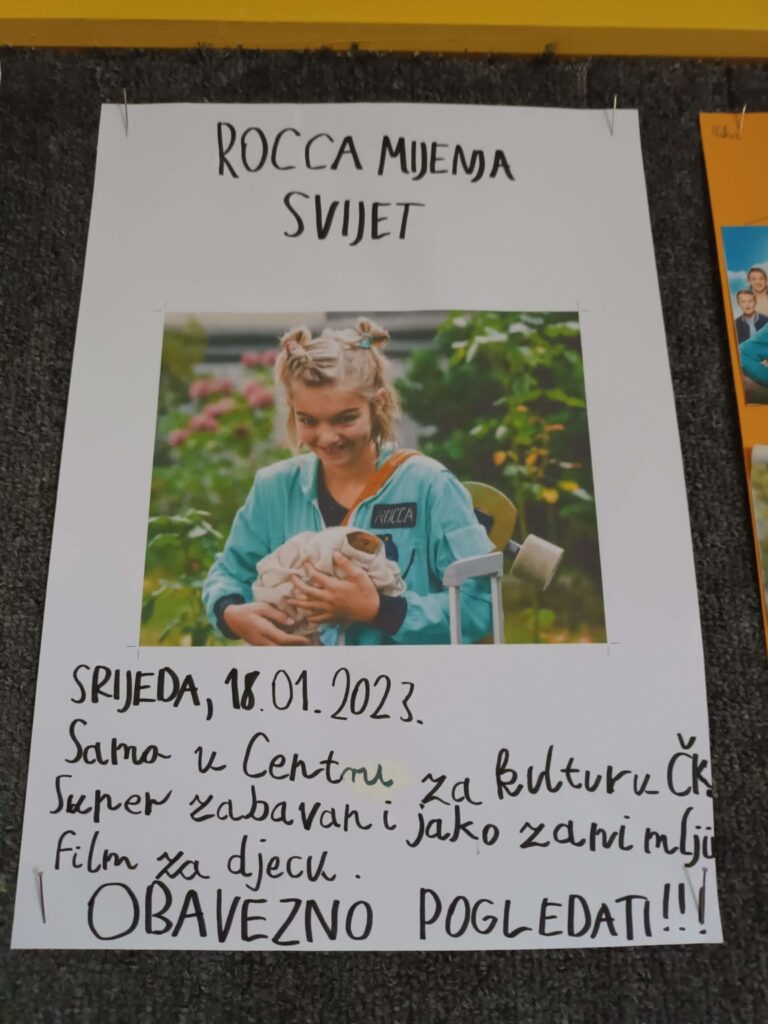 ROCCA MIJENJA
SVIJET
ROCCA
SRIJEDA, 18.01.2023.
Samo u Centru za kulturu ČK.
Super zabavan i jako zanimlji
film za djecu.
OBAVEZNO POGLEDATI!!!